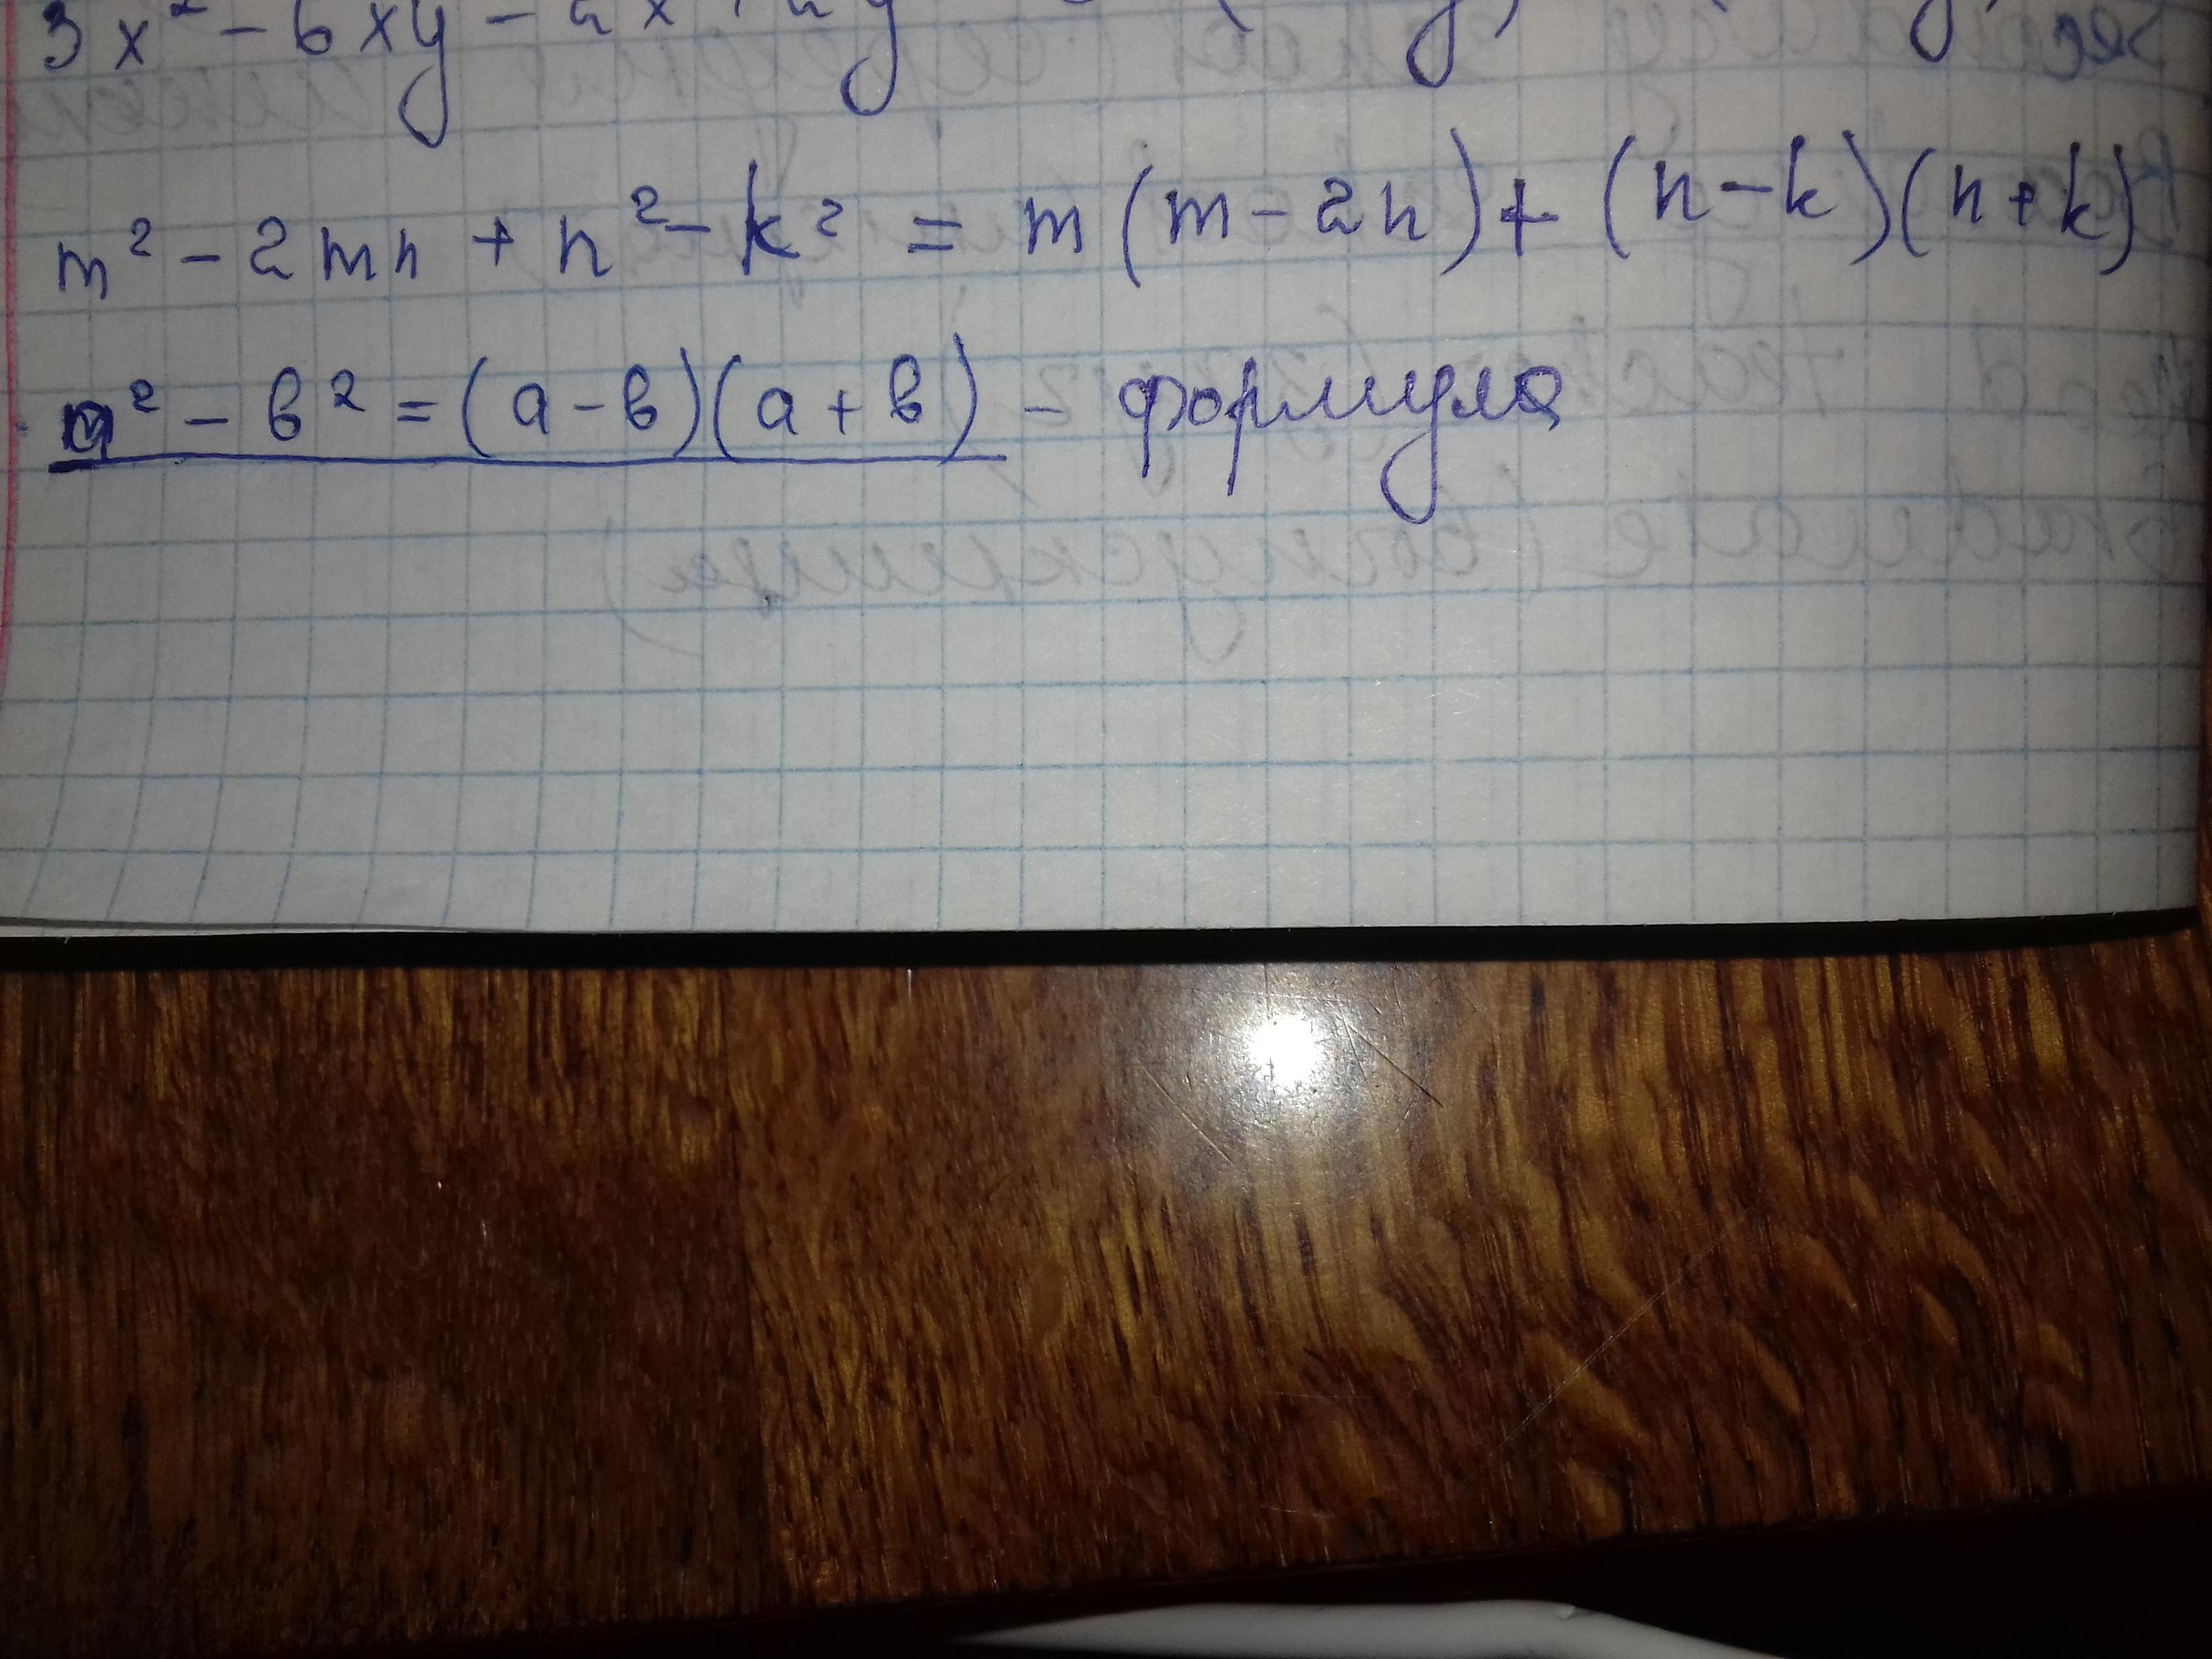 3x² - 6xy - 2x + 2y
m² - 2mn + n² - k² = m(m - 2n) + (n - k)(n + k)
a² - в² = (a - в)(a + в) - формула